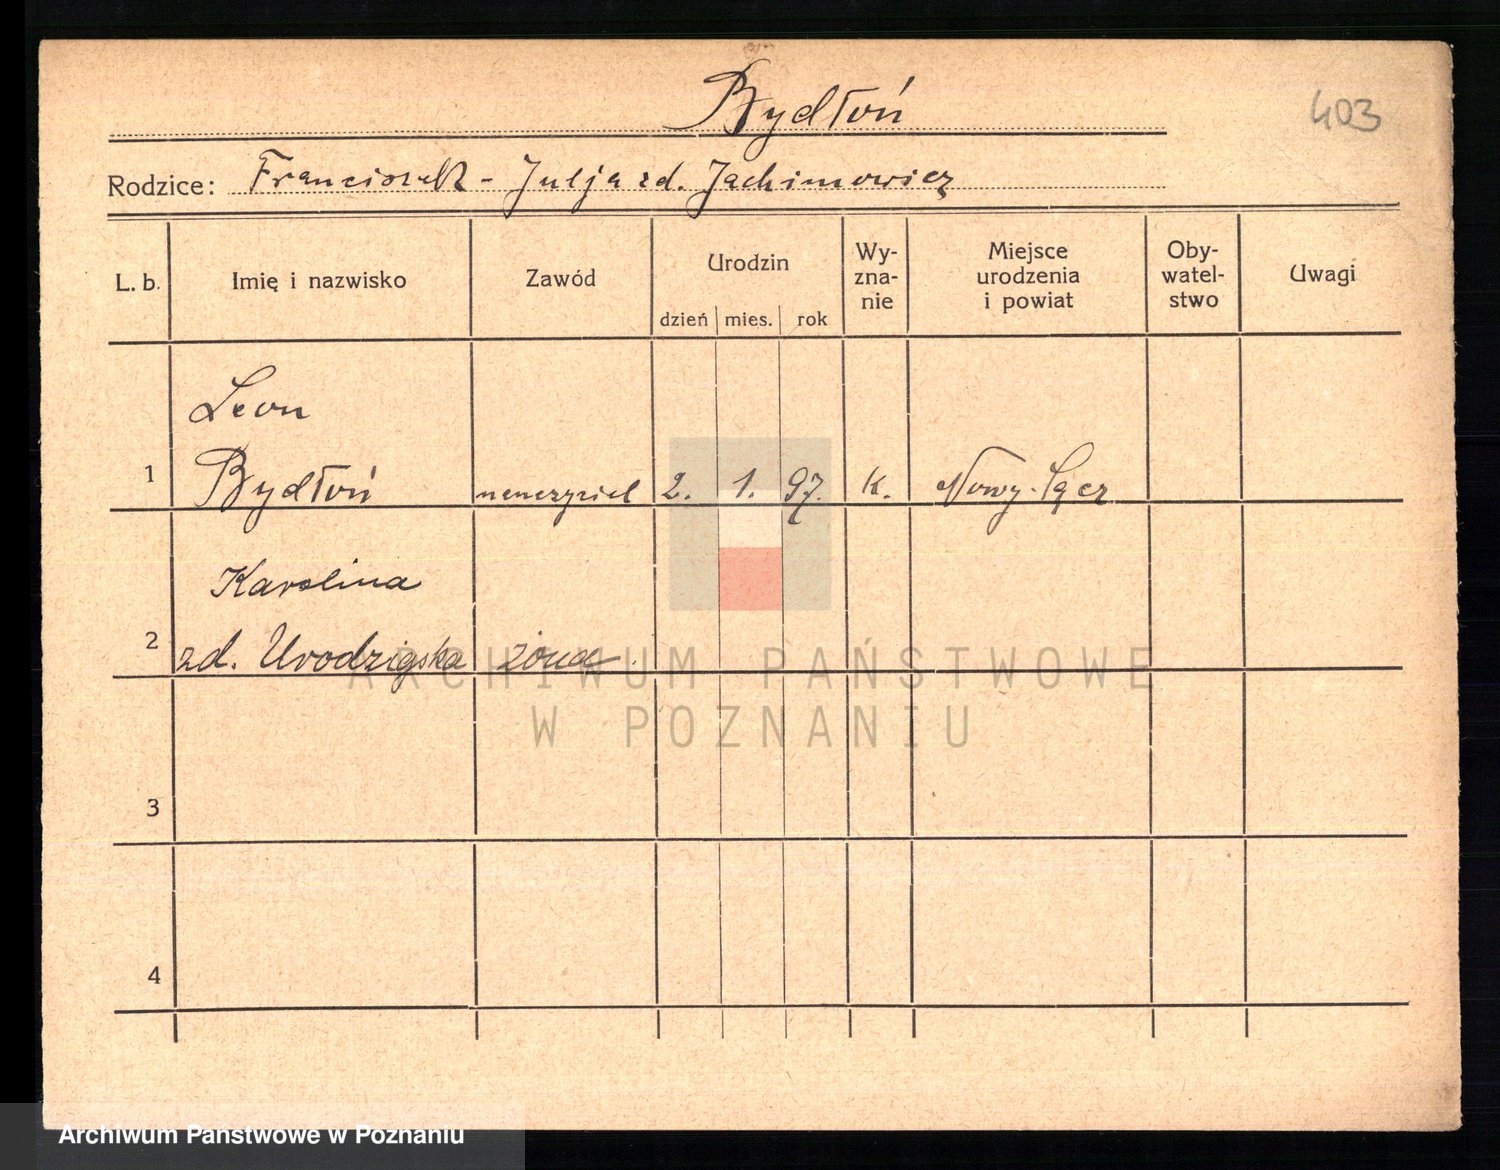 Bydłoń
403
Rodzice: Franciszek - Julja zd. Jachimowicz
L. b. Imię i nazwisko Zawód Urodzin dzień mies. rok Wy-zna-nie Miejsce urodzenia i powiat Oby-watel-stwo Uwagi
Leon
1 Bydłoń nauczyciel 2. 1. 97. K. Nowy-Sącz
Karolina
2 zd. żona.
ARCHIWUM PAŃSTWOWE
W POZNANIU
3
4
Archiwum Państwowe w Poznaniu